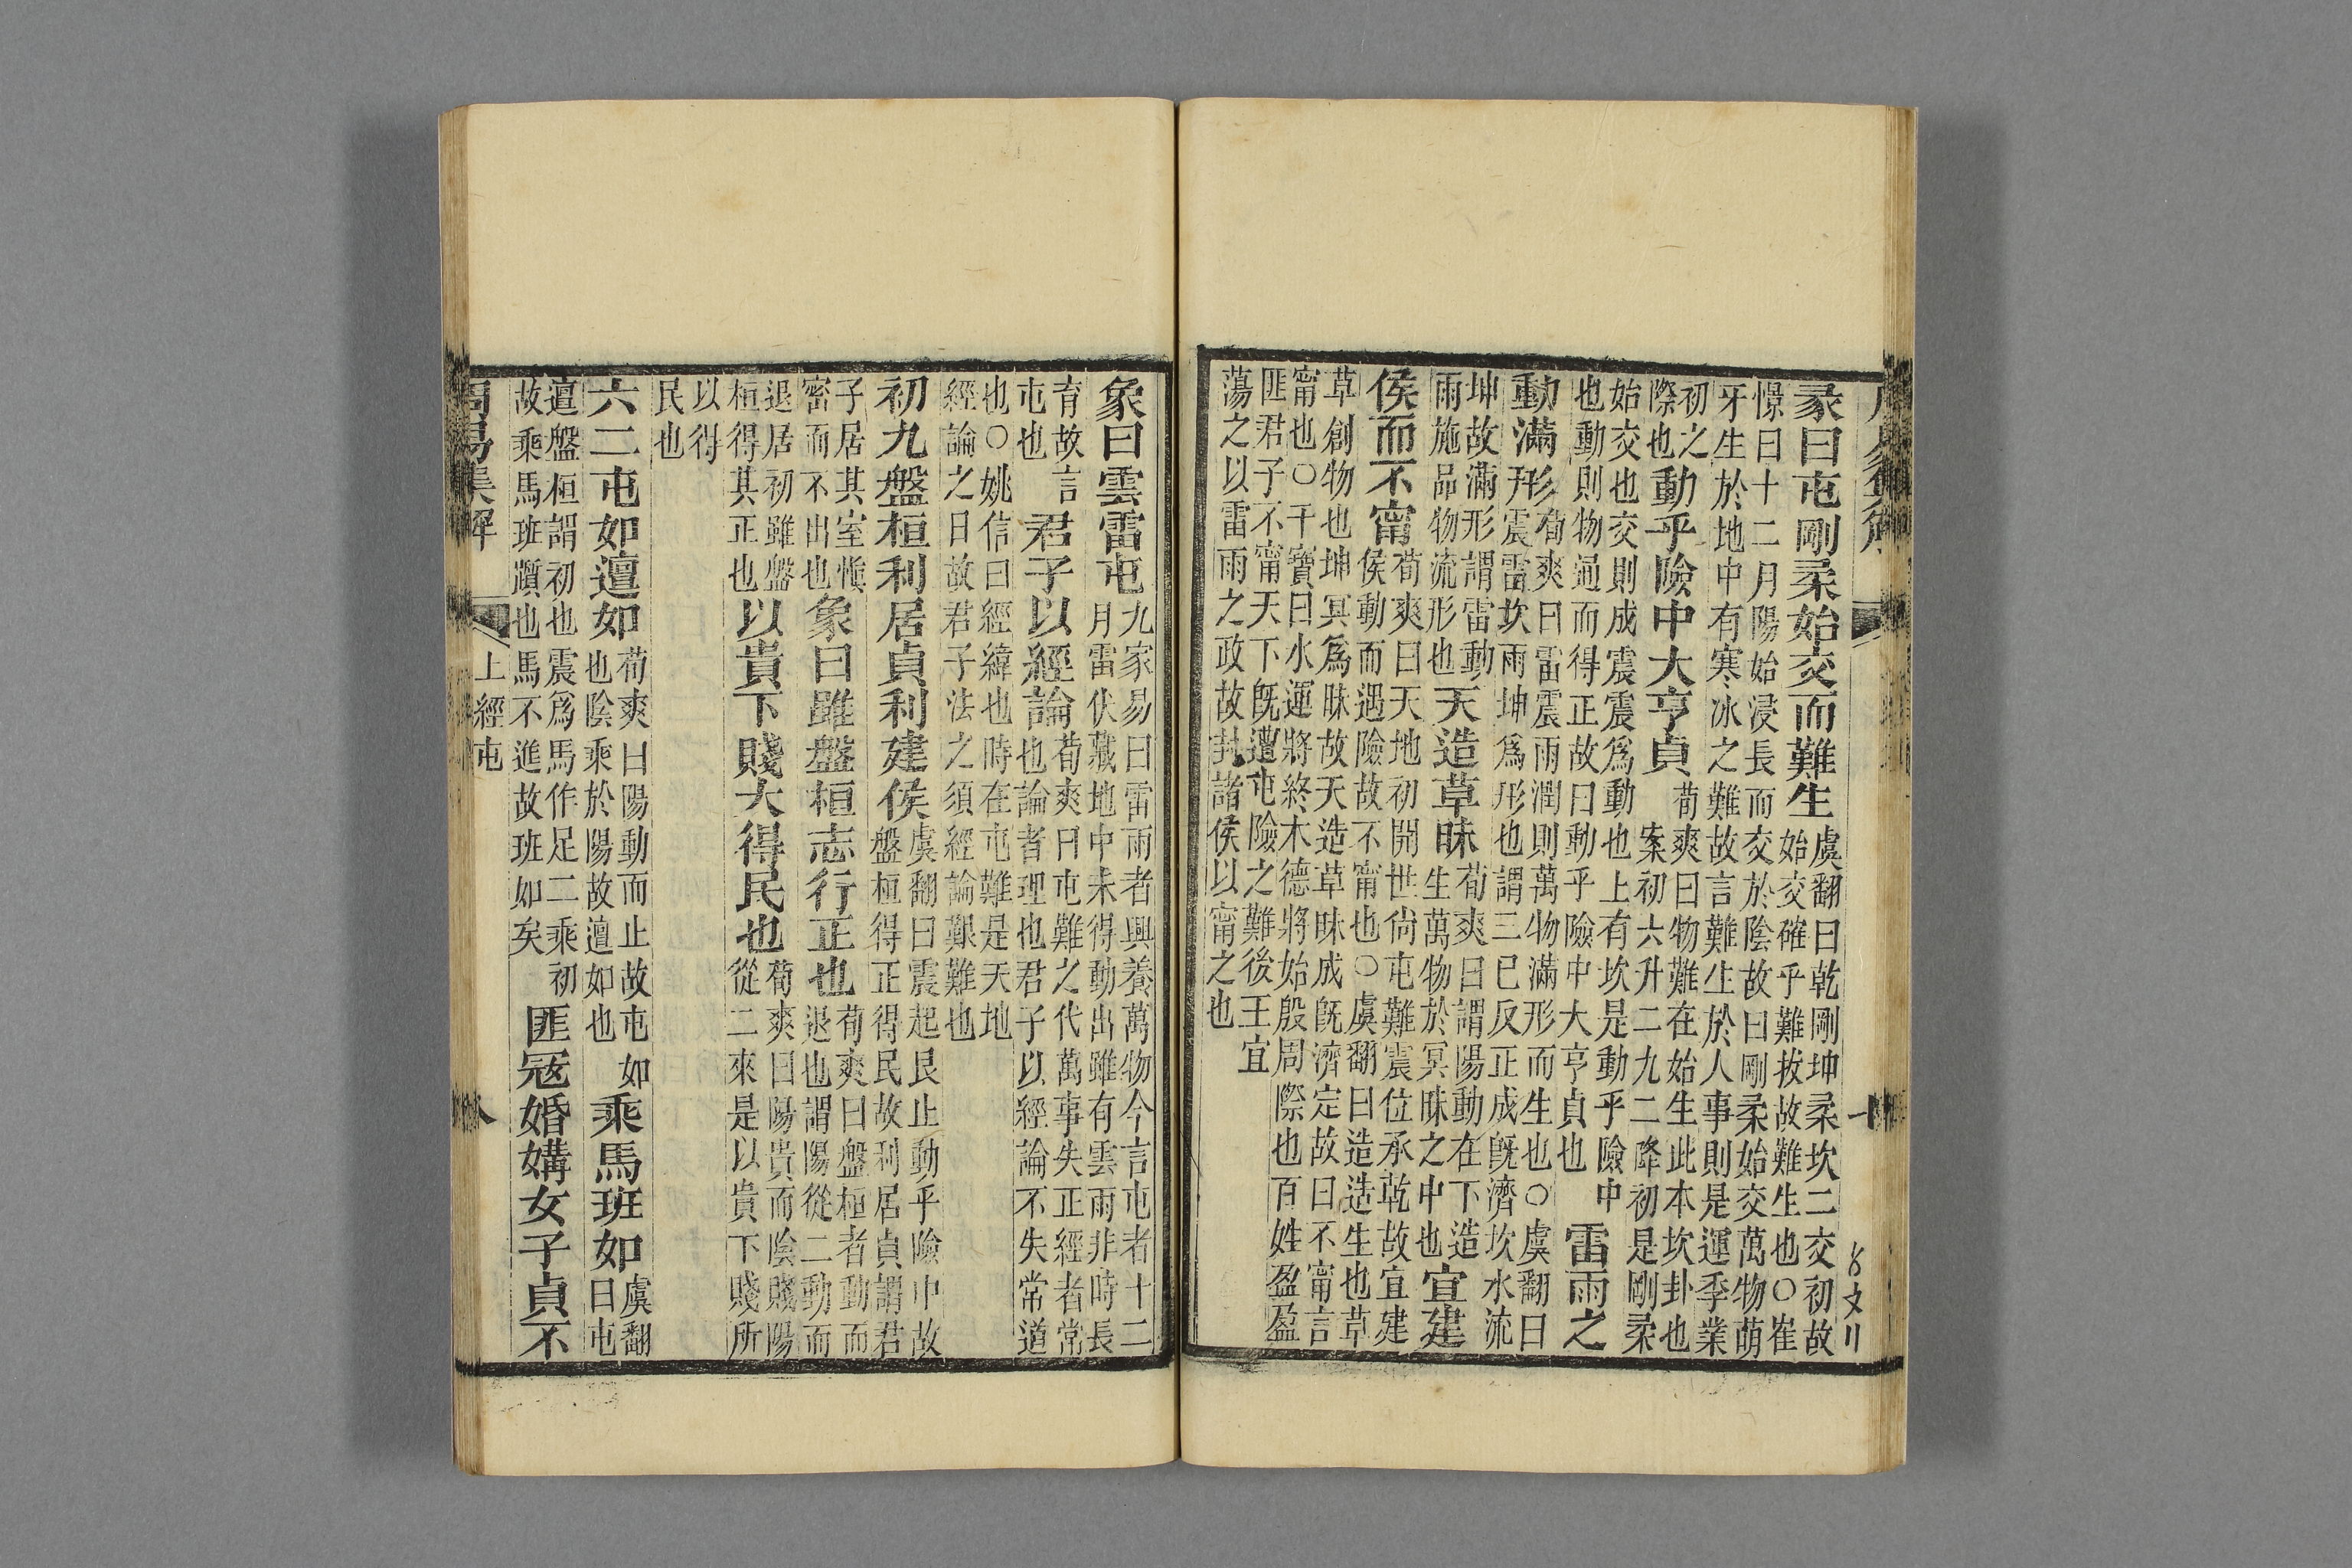 彖曰屯剛柔始交而難生虞翻曰乾剛坤柔坎二交初故始交確乎難拔故難生也○崔
憬曰十二月陽始浸長而交於陰故曰剛柔始交萬物萌牙生於地中有寒冰之難故言難生於人事則是運季業
初之際也動乎險中大亨貞荀爽曰物難在始生此本坎卦也案初六升二九二降初是剛柔
始交也交則成震震爲動也上有坎是動乎險中也動則物通而得正故曰動乎險中大亨貞也雷雨之
動滿形荀爽曰雷震雨潤則萬物滿形而生也○虞翻曰震雷坎雨坤爲形也謂三已反正成旣濟坎水流
坤故滿形謂雷動雨施品物流形也天造草昧荀爽曰謂陽動在下造生萬物於冥昧之中也宜建
侯而不甯荀爽曰天地初開世尙屯難震位承乾故宜建侯動而遇險故不甯也○虞翻曰造造生也草
草創物也坤冥爲昧故天造草昧成旣濟定故曰不甯言甯也○干寶曰水運將終木德將始殷周際也百姓盈盈
匪君子不甯天下旣遭屯險之難後王宜蕩之以雷雨之政故封諸侯以甯之也
象曰雲雷屯九家易曰雷雨者興養萬物今言屯者十二月雷伏藏地中未得動出雖有雲雨非時長
育故言屯也君子以經論荀爽曰屯難之代萬事失正經者常也論者理也君子以經論不失常道
也○姚信曰經緯也時在屯難是天地經論之日故君子法之須經論艱難也
初九盤桓利居貞利建侯虞翻曰震起艮止動乎險中故盤桓得正得民故利居貞謂君
子居其室愼密而不出也象曰雖盤桓志行正也荀爽曰盤桓者動而退也謂陽從二動而
退居初雖盤桓得其正也以貴下賤大得民也荀爽曰陽貴而陰賤陽從二來是以貴下賤所
以得民也
六二屯如邅如荀爽曰陽動而止故屯如也陰乘於陽故邅如也乘馬班如虞翻曰屯
邅盤桓謂初也震爲馬作足二乘初故乘馬班躓也馬不進故班如矣匪寇婚媾女子貞不
周易集解
上經屯
八